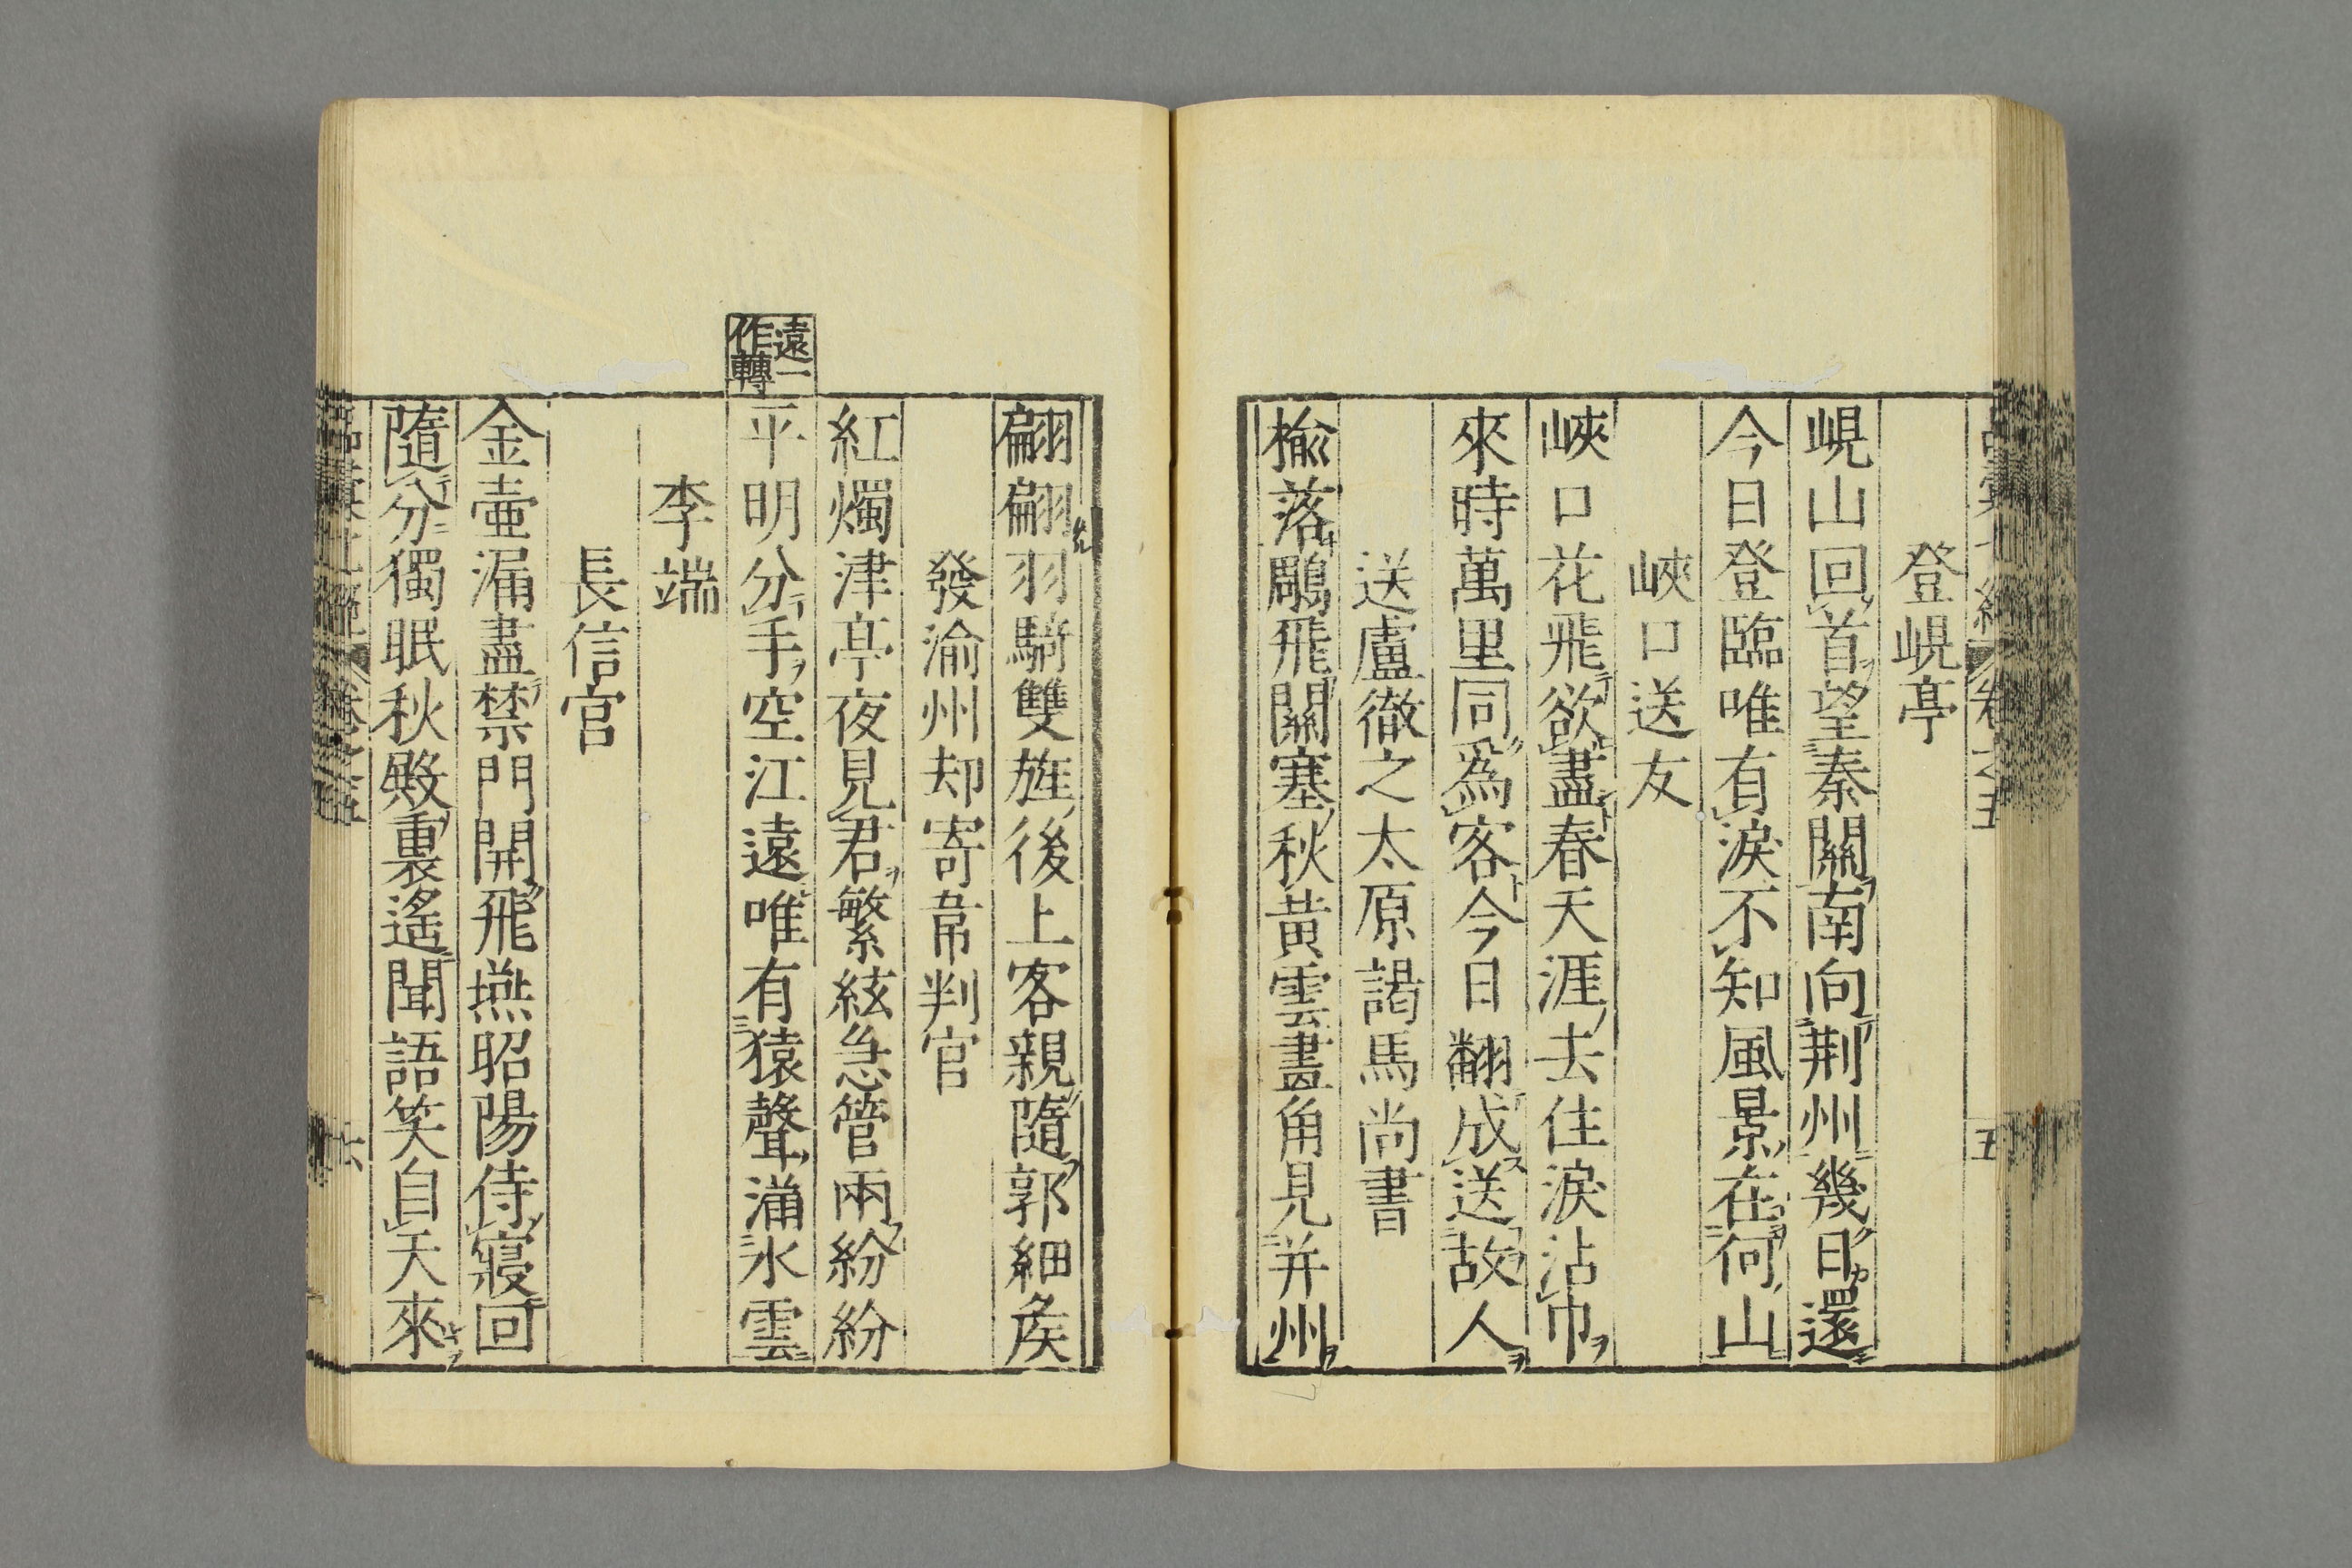 登峴亭
峴山回首望秦關南向荆州幾日還
今日登臨唯有淚不知風景在何山
峽口送友
峽口花飛欲盡春天涯去住淚沾巾
來時萬里同爲客今日翻成送故人
送盧徹之太原謁馬尚書
榆落鵰飛關塞秋黃雲畫角見并州
翩翩羽騎雙旌後上客親隨郭細矦
發渝州却寄韋判官
紅燭津亭夜見君繁絃急管兩紛紛
遠一作轉
平明分手空江遠唯有猿聲滿水雲
李端
長信宮
金壷漏盡禁門開飛燕昭陽侍寢回
隨分獨眠秋殿裏遙聞語笑自天來
卷之五
五
六